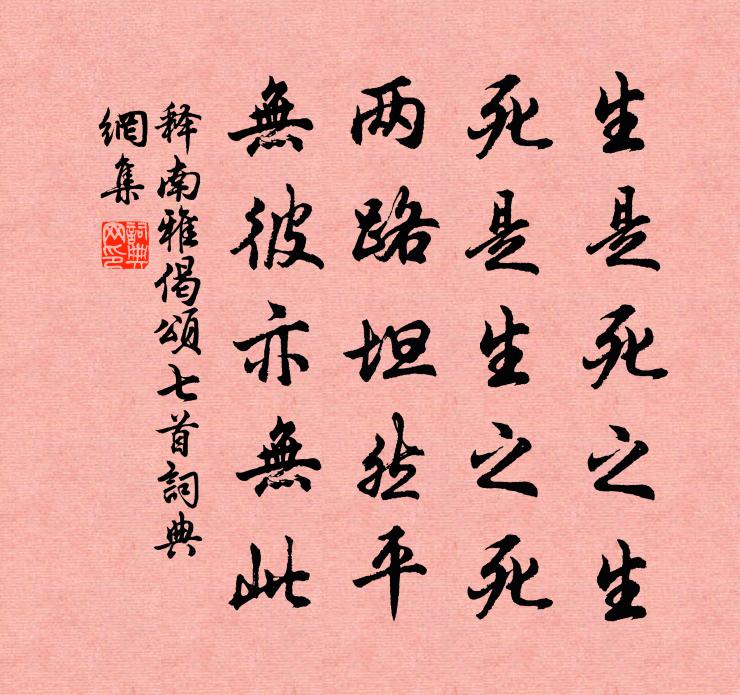 生是死之生
死是生之死
两路坦然平
無彼亦無此
释南雅偈頌七首詞典
網集
詞典網印